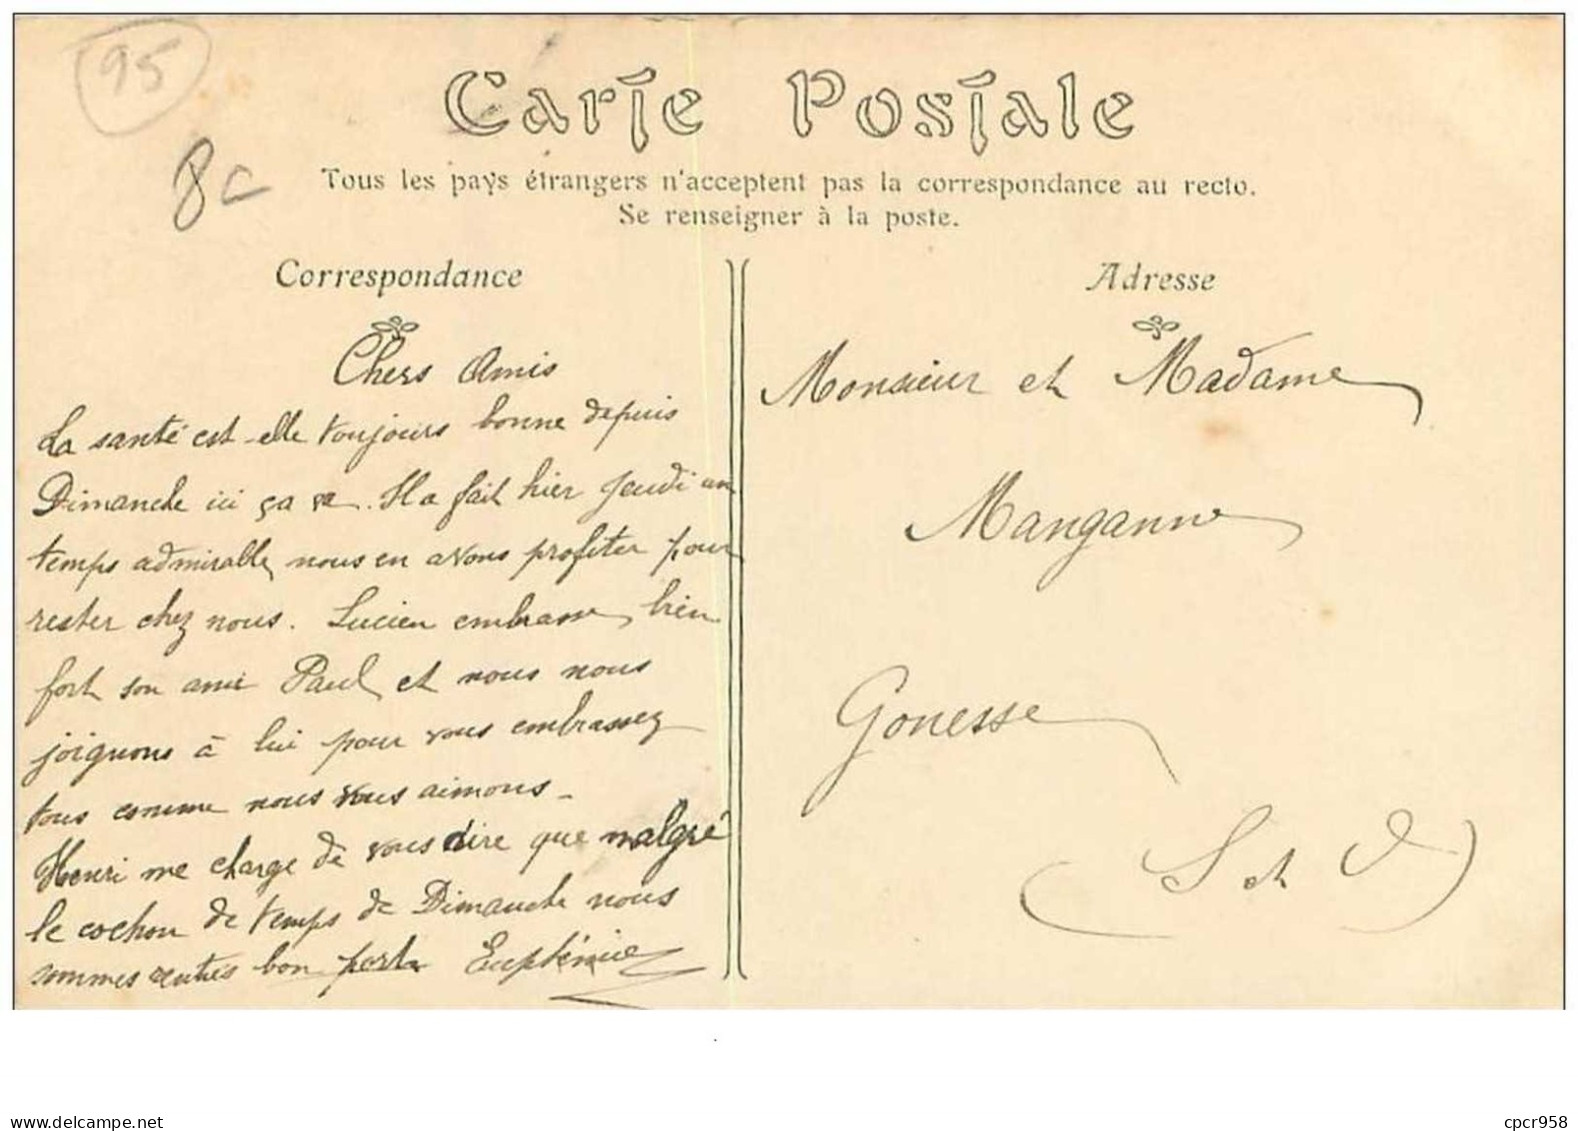 95
8c
Carte Postale
Tous les pays étrangers n'acceptent pas la correspondance au recto.
Se renseigner à la poste.
Correspondance
Chers Amis
La santé est-elle toujours bonne depuis
Dimanche ici ça va. Il a fait hier Jeudi un
temps admirable, nous en avons profiter pour
rester chez nous. Lucien embrasse bien
fort son ami Paul et nous nous
joignons à lui pour vous embrassez
tous comme nous vous aimons_
Henri me charge de vous dire que malgré
le cochon de temps de Dimanche nous
sommes rentrés bon port Euphémie
Adresse
Monsieur et Madame
Manganne
Gonesse
(S et O)
delcampe.net
cpcr958